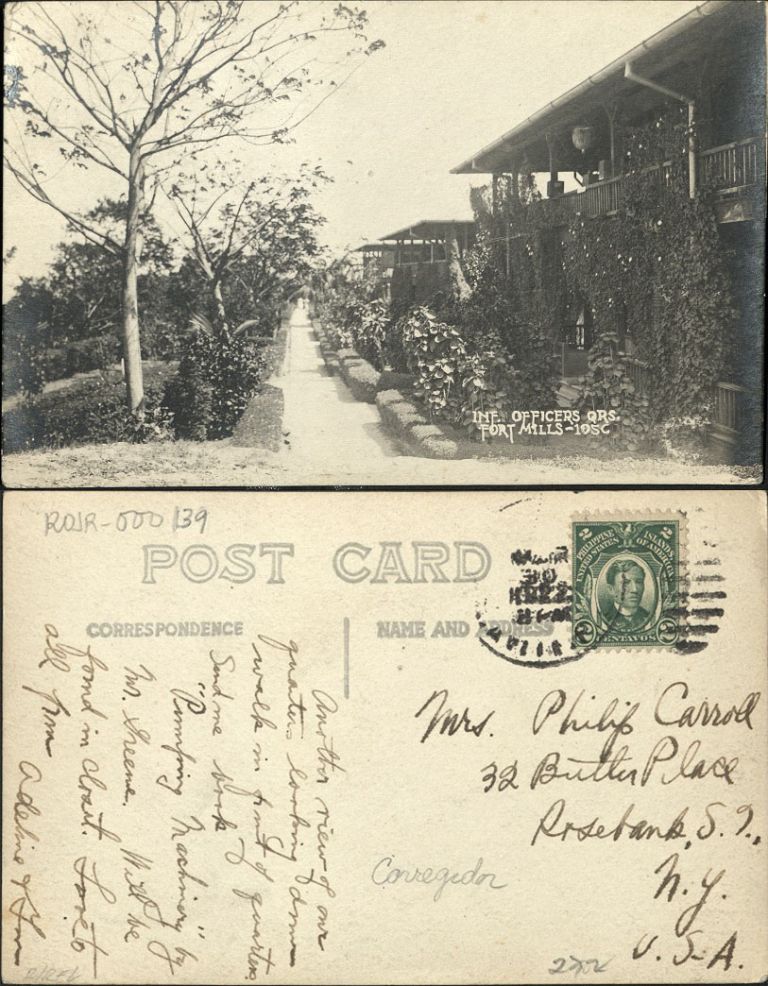 INF. OFFICERS QRS.
FORT MILLS-105C
ROJR-000139
POST CARD
CORRESPONDENCE
NAME AND ADDRESS
2 2
PHILIPPINE ISLANDS
UNITED STATES OF AMERICA
2 CENTAVOS 2
Another view of our
quarters looking down
walk in front of quarters.
Send me book
"Pumping Machinery" by
Mr. Greene. Will be
found in closet. Love to
all from Adeline & Jim
Mrs. Philip Carroll
32 Butler Place
Rosebank, S.I.,
N.Y.
U.S.A.
Corregidor